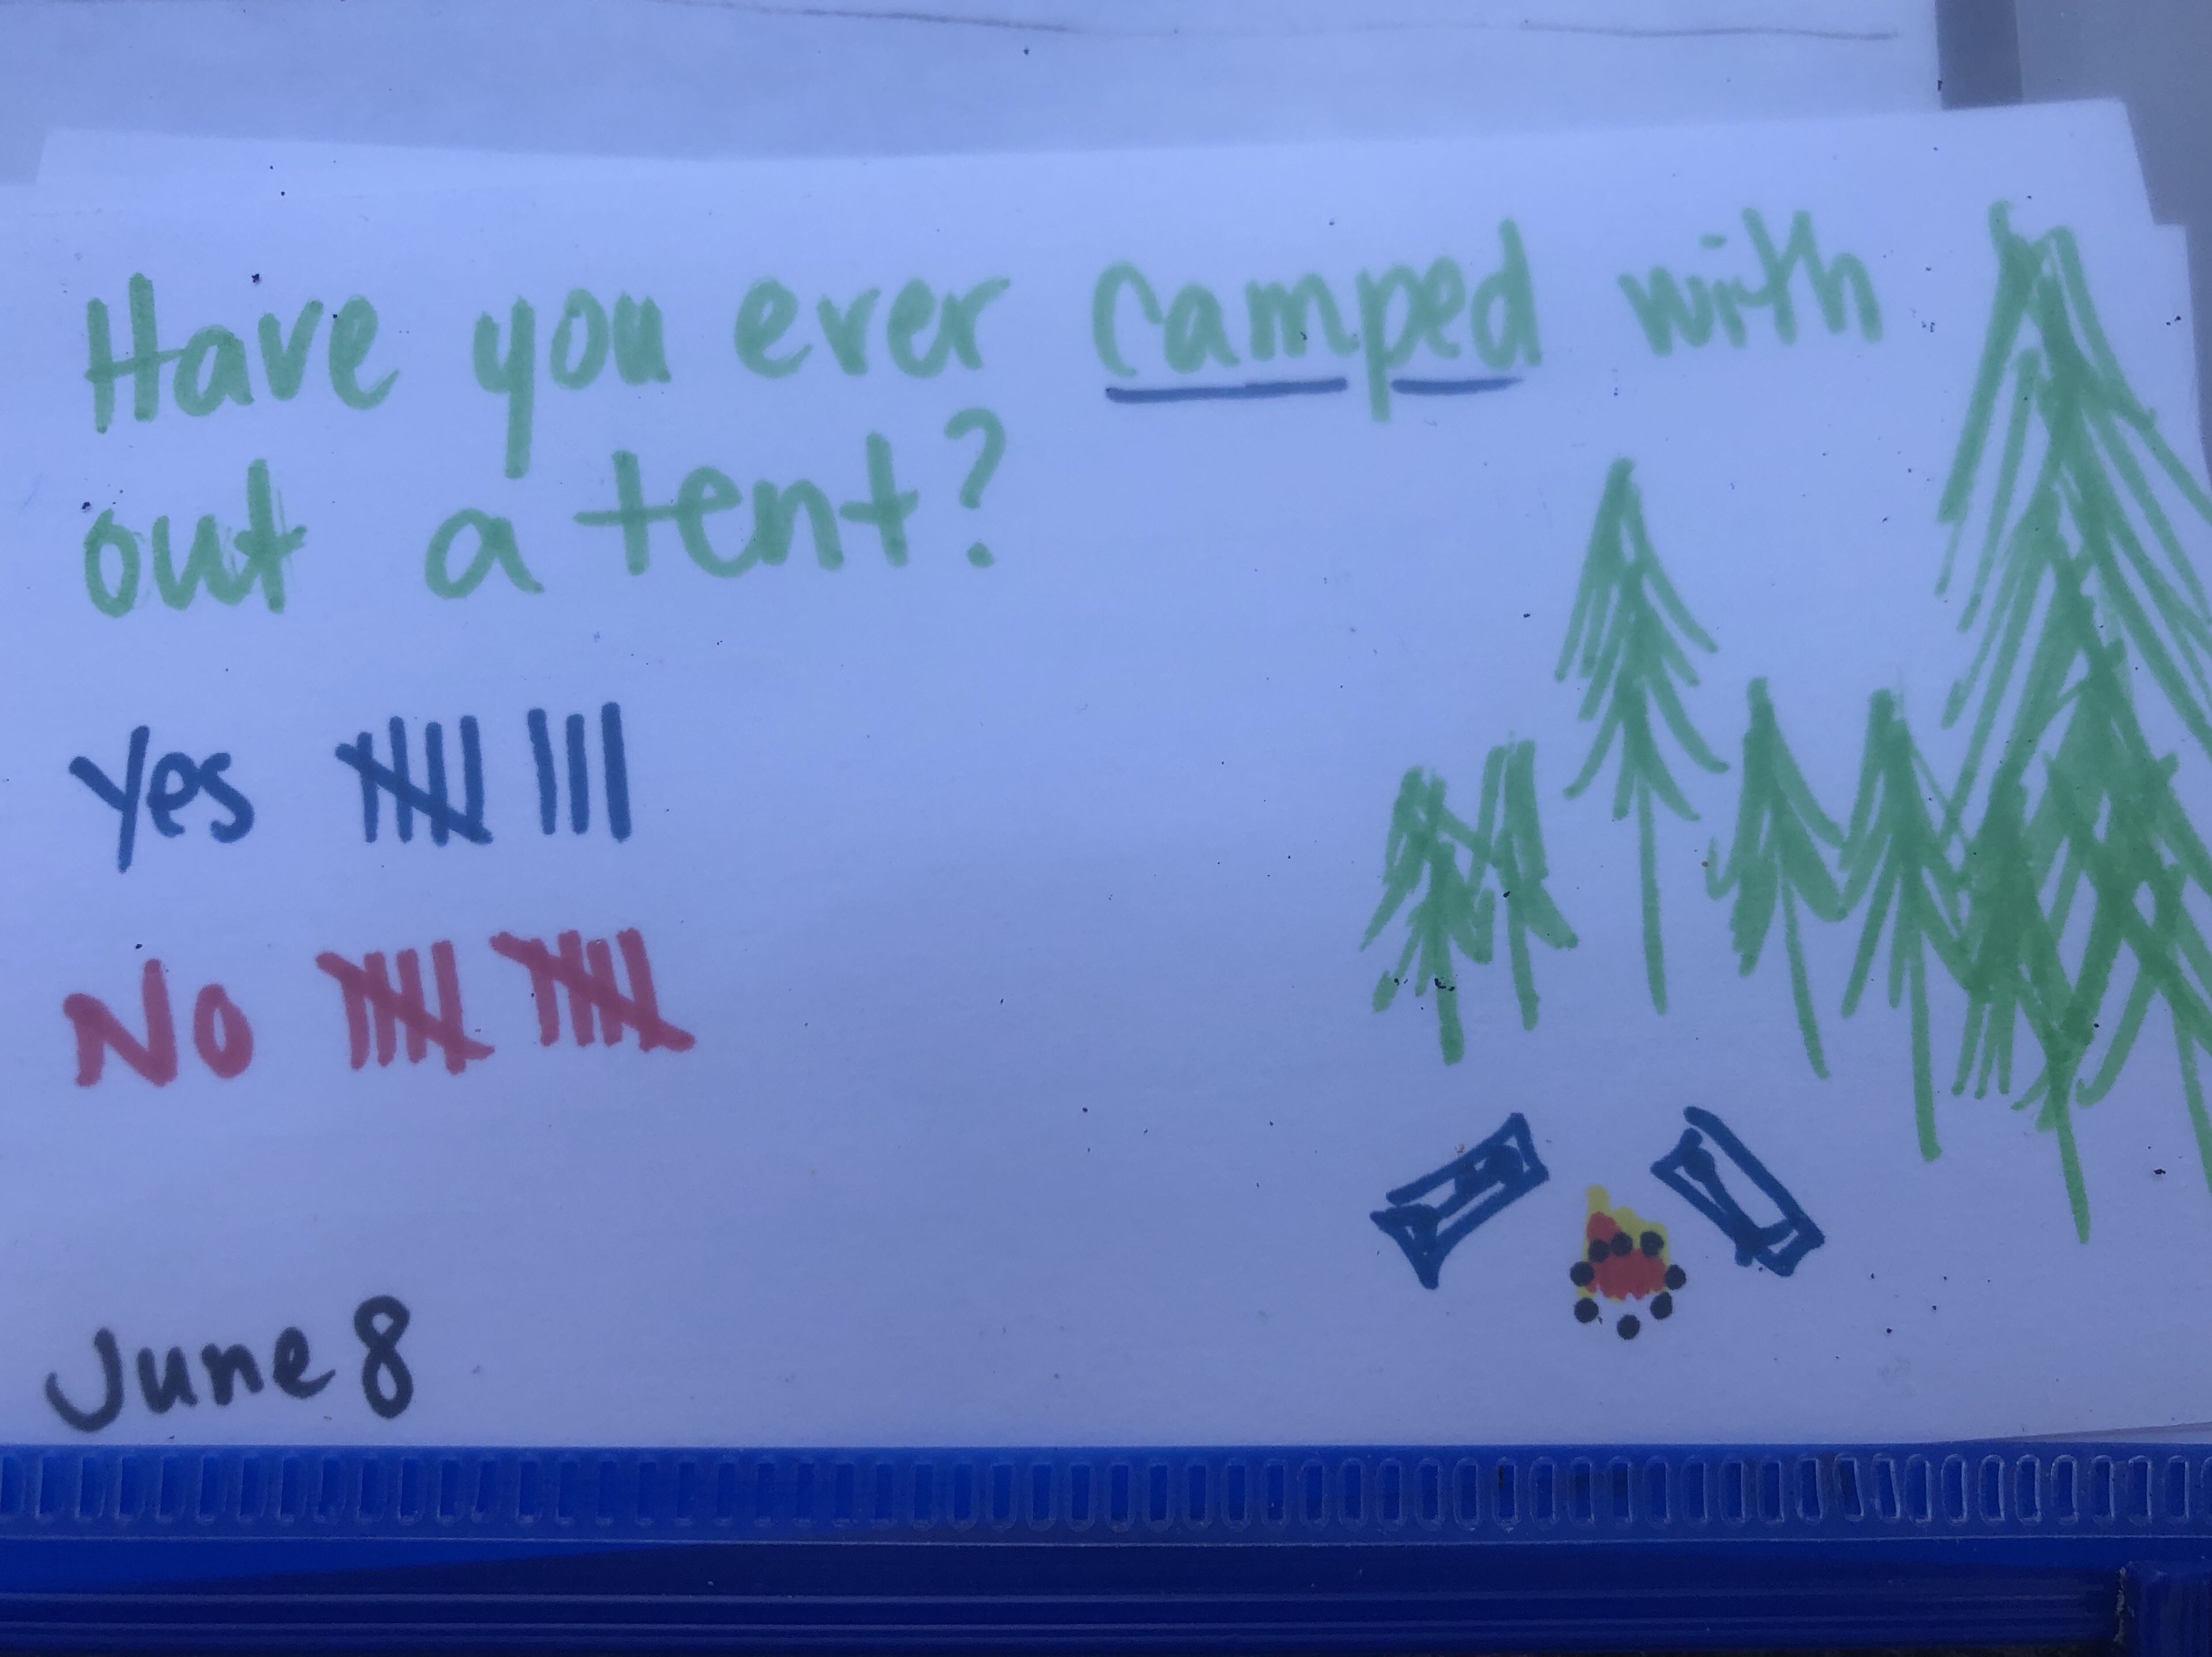 Have you ever camped with
out a tent?
Yes
No
June 8